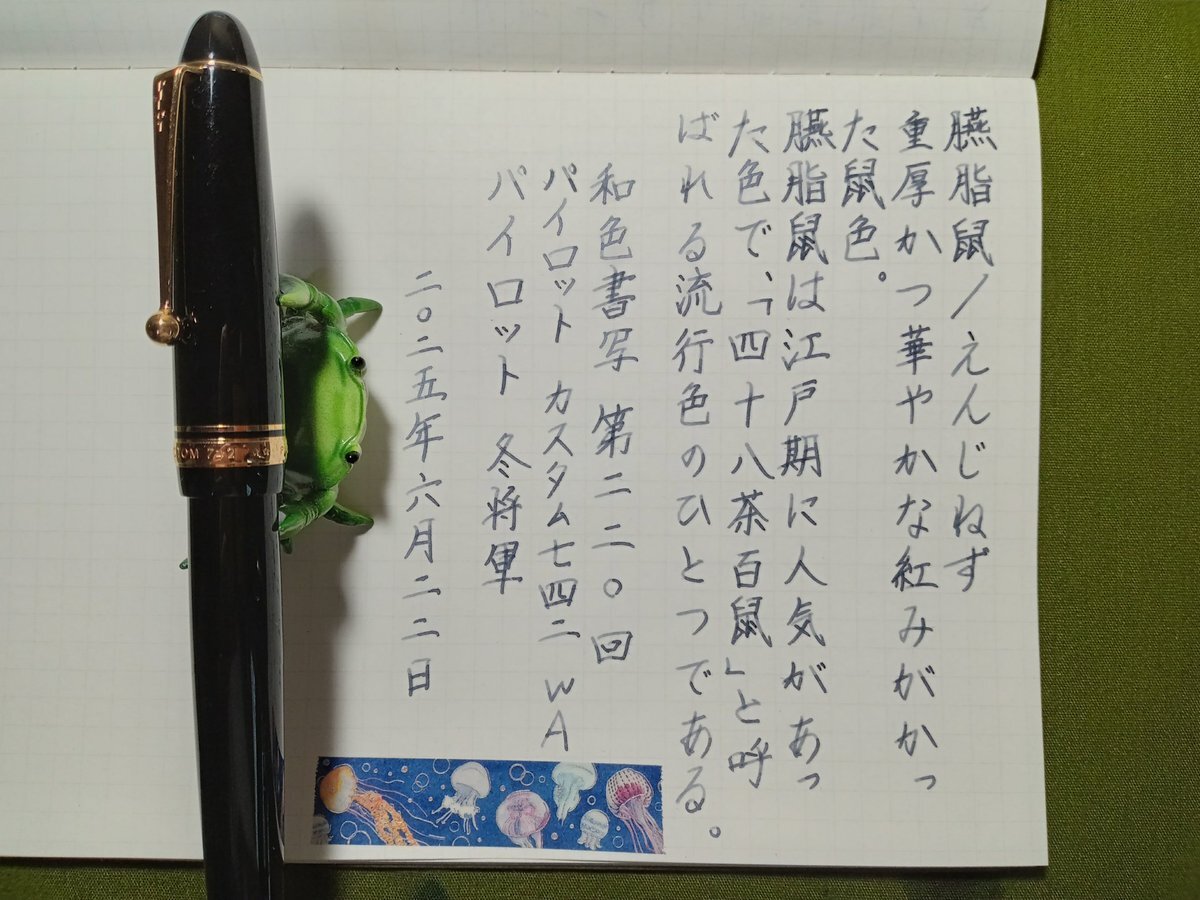 臙脂鼠/えんじねず
重厚かつ華やかな紅みがかっ
た鼠色。
臙脂鼠は江戸期に人気があっ
た色で、「四十八茶百鼠」と呼
ばれる流行色のひとつである。
和色書写 第二二〇回
パイロット カスタム七四二 WA
パイロット 冬将軍
二〇二五年六月二二日